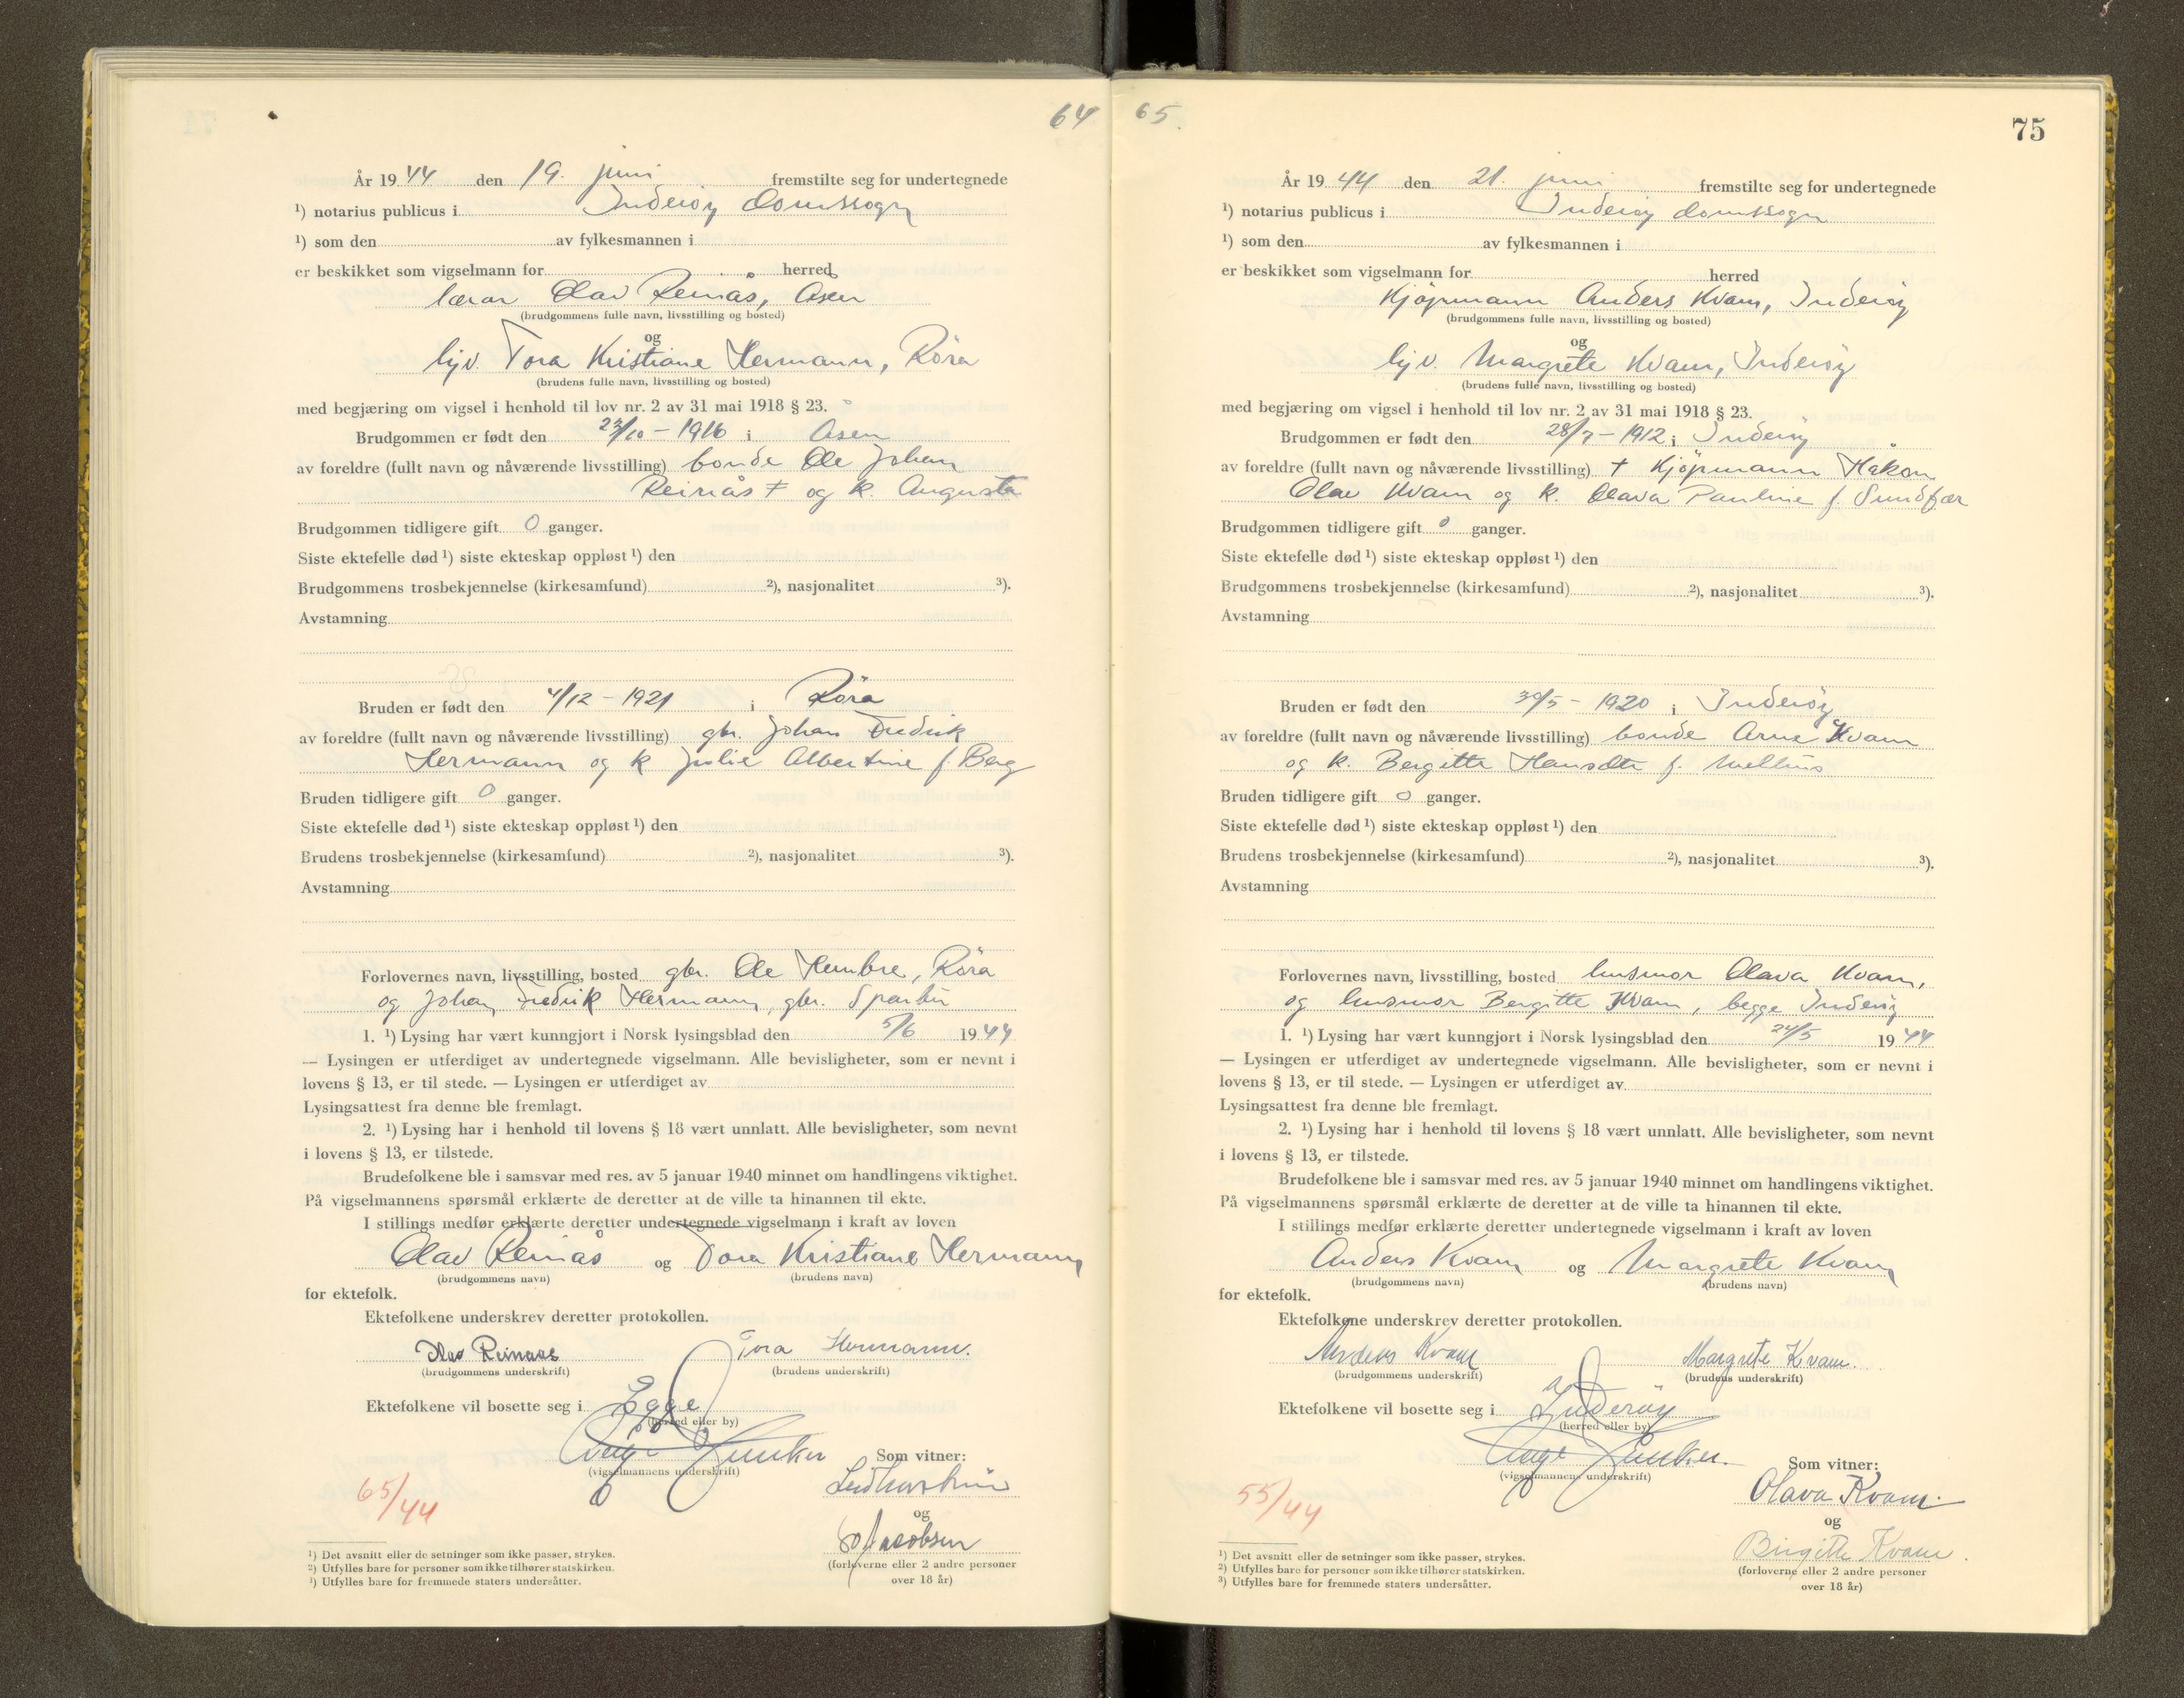 64
År 1944 den 19. juni fremstilte seg for undertegnede
¹) notarius publicus i Inderöy domssogn
¹) som den av fylkesmannen i
er beskikket som vigselmann for herred
lærar Olav Reinås, Åsen
(brudgommens fulle navn, livsstilling og bosted)
og
hjv. Tora Kristiane Hermann, Röra
(brudens fulle navn, livsstilling og bosted)
med begjæring om vigsel i henhold til lov nr. 2 av 31 mai 1918 § 23.
Brudgommen er født den 23/10 - 1916 i Åsen
av foreldre (fullt navn og nåværende livsstilling) bonde Ole Johan
Reinås † og k. Augusta
Brudgommen tidligere gift 0 ganger.
Siste ektefelle død ¹) siste ekteskap oppløst ¹) den
Brudgommens trosbekjennelse (kirkesamfund) ²), nasjonalitet ³).
Avstamning
Bruden er født den 4/12 - 1921 i Röra
av foreldre (fullt navn og nåværende livsstilling) gbr. Johan Fredrik
Hermann og k Julie Albertine f. Berg
Bruden tidligere gift 0 ganger.
Siste ektefelle død ¹) siste ekteskap oppløst ¹) den
Brudens trosbekjennelse (kirkesamfund) ²), nasjonalitet ³).
Avstamning
Forlovernes navn, livsstilling, bosted gbr. Ole Hembre, Röra
og Johan Fredrik Hermann, gbr. Sparbu
1. ¹) Lysing har vært kunngjort i Norsk lysingsblad den 5/6 1944
— Lysingen er utferdiget av undertegnede vigselmann. Alle bevisligheter, som er nevnt i
lovens § 13, er til stede. — Lysingen er utferdiget av
Lysingsattest fra denne ble fremlagt.
2. ¹) Lysing har i henhold til lovens § 18 vært unnlatt. Alle bevisligheter, som nevnt
i lovens § 13, er tilstede.
Brudefolkene ble i samsvar med res. av 5 januar 1940 minnet om handlingens viktighet.
På vigselmannens spørsmål erklærte de deretter at de ville ta hinannen til ekte.
I stillings medfør erklærte deretter undertegnede vigselmann i kraft av loven
Olav Reinås og Tora Kristiane Hermann
(brudgommens navn) (brudens navn)
for ektefolk.
Ektefolkene underskrev deretter protokollen.
Olav Reinaas Tora Hermann.
(brudgommens underskrift) (brudens underskrift)
Ektefolkene vil bosette seg i Egge
(herred eller by)
Junker Som vitner:
(vigselmannens underskrift)
65/44
og
Jacobsen
(forloverne eller 2 andre personer
over 18 år)
¹) Det avsnitt eller de setninger som ikke passer, strykes.
²) Utfylles bare for personer som ikke tilhører statskirken.
³) Utfylles bare for fremmede staters undersåtter.
65.
75
År 1944 den 21. juni fremstilte seg for undertegnede
¹) notarius publicus i Inderöy domssogn
¹) som den av fylkesmannen i
er beskikket som vigselmann for herred
Kjöpmann Anders Kvam, Inderöy
(brudgommens fulle navn, livsstilling og bosted)
og
hjv. Margrete Kvam, Inderöy
(brudens fulle navn, livsstilling og bosted)
med begjæring om vigsel i henhold til lov nr. 2 av 31 mai 1918 § 23.
Brudgommen er født den 28/7 - 1912 i Inderöy
av foreldre (fullt navn og nåværende livsstilling) † Kjöpmann Håkon
Olav Kvam og k. Olava Pauline f. Sundfær
Brudgommen tidligere gift 0 ganger.
Siste ektefelle død ¹) siste ekteskap oppløst ¹) den
Brudgommens trosbekjennelse (kirkesamfund) ²), nasjonalitet ³).
Avstamning
Bruden er født den 30/5 - 1920 i Inderöy
av foreldre (fullt navn og nåværende livsstilling) bonde Arne Kvam
og k. Bergitte Hansdtr f.
Bruden tidligere gift 0 ganger.
Siste ektefelle død ¹) siste ekteskap oppløst ¹) den
Brudens trosbekjennelse (kirkesamfund) ²), nasjonalitet ³).
Avstamning
Forlovernes navn, livsstilling, bosted husmor Olava Kvam,
og husmor Bergitte Kvam, begge Inderöy
1. ¹) Lysing har vært kunngjort i Norsk lysingsblad den 24/5 1944
— Lysingen er utferdiget av undertegnede vigselmann. Alle bevisligheter, som er nevnt i
lovens § 13, er til stede. — Lysingen er utferdiget av
Lysingsattest fra denne ble fremlagt.
2. ¹) Lysing har i henhold til lovens § 18 vært unnlatt. Alle bevisligheter, som nevnt
i lovens § 13, er tilstede.
Brudefolkene ble i samsvar med res. av 5 januar 1940 minnet om handlingens viktighet.
På vigselmannens spørsmål erklærte de deretter at de ville ta hinannen til ekte.
I stillings medfør erklærte deretter undertegnede vigselmann i kraft av loven
Anders Kvam og Margrete Kvam
(brudgommens navn) (brudens navn)
for ektefolk.
Ektefolkene underskrev deretter protokollen.
Anders Kvam Margrete Kvam.
(brudgommens underskrift) (brudens underskrift)
Ektefolkene vil bosette seg i Inderöy
(herred eller by)
Junker. Som vitner:
(vigselmannens underskrift)
55/44
Olava Kvam.
og
Birgitte Kvam.
(forloverne eller 2 andre personer
over 18 år)
¹) Det avsnitt eller de setninger som ikke passer, strykes.
²) Utfylles bare for personer som ikke tilhører statskirken.
³) Utfylles bare for fremmede staters undersåtter.